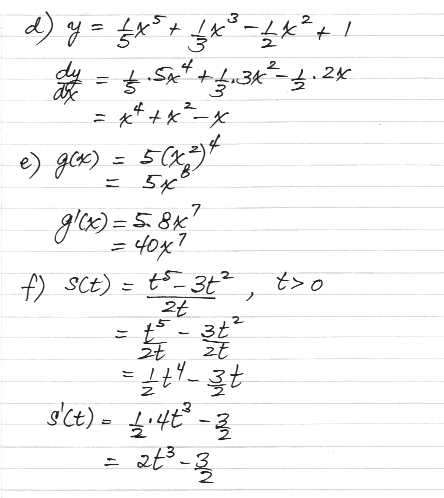 d) y = 1/5 x⁵ + 1/3 x³ - 1/2 x² + 1
dy/dx = 1/5 · 5x⁴ + 1/3 · 3x² - 1/2 · 2x
= x⁴ + x² - x
e) g(x) = 5(x²)⁴
= 5x⁸
g'(x) = 5·8x⁷
= 40x⁷
f) s(t) = (t⁵ - 3t²)/2t , t>0
= t⁵/2t - 3t²/2t
= 1/2 t⁴ - 3/2 t
s'(t) = 1/2 · 4t³ - 3/2
= 2t³ - 3/2